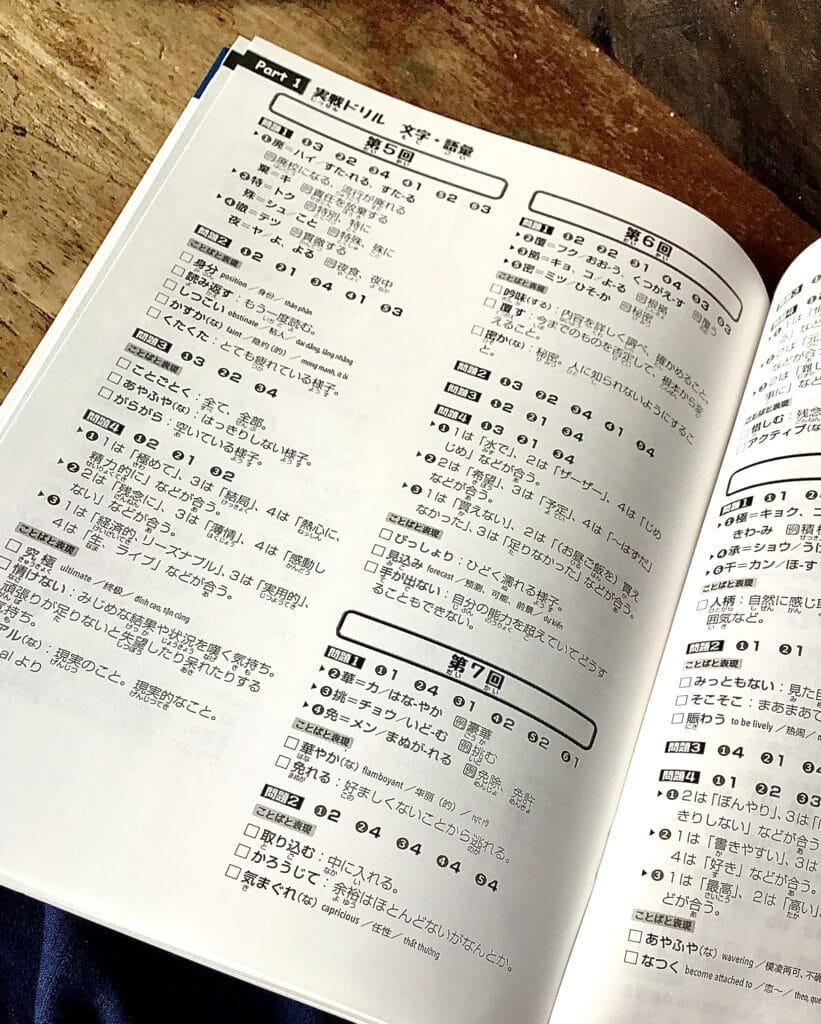 Part 1 実戦ドリル 文字・語彙
第5回
問題1 ❶3 ❷2 ❸4 ❹1 ❺2 ❻3
▶❶廃=ハイ/すた-れる、すた-る
例廃校になる、流行が廃れる
▶❷棄=キ 例責任を放棄する
特=トク 例特別、特に
殊=シュ/こと 例特殊、殊に
▶❹徹=テツ 例貫徹する
夜=ヤ/よ、よる 例夜食、夜中
問題2 ❶2 ❷1 ❸4 ❹1 ❺3
ことばと表現
□身分 position/身份/thân phận
□読み返す:もう一度読む。
□しつこい obstinate/粘人/dai dẳng, lằng nhằng
□かすか(な) faint/隐约(的)/mong manh, ít ỏi
□くたくた:とても疲れている様子。
問題3 ❶3 ❷2 ❸4
ことばと表現
□ことごとく:全て、全部。
□あやふや(な):はっきりしない様子。
□がらがら:空いている様子。
問題4 ❶2 ❷1 ❸2
▶❶1は「極めて」、3は「結局」、4は「熱心に、
精力的に」などが合う。
▶❷2は「残念に」、3は「薄情」、4は「感動し
ない」などが合う。
▶❸1は「経済的、リーズナブル」、3は「実用的」、
4は「生、ライブ」などが合う。
ことばと表現
□究極 ultimate/终极/đỉnh cao, tận cùng
□情けない:みじめな結果や状況を嘆く気持ち。
頑張りが足りないと失望したり呆れたりする
気持ち。
アル(な):現実のこと。現実的なこと。
al より
第6回
問題1 ❶2 ❷2 ❸1 ❹4 ❺3 ❻3
▶❷覆=フク/おお-う、くつがえ-す 例覆う
▶❸拠=キョ、コ/よ-る 例根拠
▶❺密=ミツ/ひそ-か 例秘密
ことばと表現
□吟味(する):内容を詳しく調べ、確かめること。
□覆す:今までのものを否定して、根本から変
えること。
□密か(な):秘密。人に知られないようにするこ
と。
問題2 ❶3 ❷2 ❸4 ❹1 ❺4
問題3 ❶2 ❷1 ❸4
問題4 ❶3 ❷1 ❸4
▶❶1は「水で」、2は「ザーザー」、4は「じめ
じめ」などが合う。
▶❷2は「希望」、3は「予定」、4は「〜はずだ」
などが合う。
▶❸1は「買えない」、2は「(お昼ご飯を)買え
なかった」、3は「足りなかった」などが合う。
ことばと表現
□びっしょり:ひどく濡れる様子。
□見込み forecast/预测、可能、前景/dự kiến
□手が出ない:自分の能力を超えていてどうす
ることもできない。
第7回
問題1 ❶1 ❷4 ❸1 ❹2 ❺2 ❻1
▶❷華=カ/はな-やか 例豪華
▶❸挑=チョウ/いど-む 例挑む
▶❹免=メン/まぬが-れる 例免除、免許
ことばと表現
□華やか(な) flamboyant/华丽(的)/rực rỡ
□免れる:好ましくないことから逃れる。
問題2 ❶2 ❷4 ❸4 ❹4 ❺4
ことばと表現
□取り込む:中に入れる。
□かろうじて:余裕はほとんどないがなんとか。
□気まぐれ(な) capricious/任性/thất thường
などが合う
2は「難し
事に」など
ことばと表現
□惜しむ:残念
□アクティブ(な
問題1 ❶1
▶❶極=キョク、コ
きわ-み 例積極
▶❹承=ショウ/うけ
▶❻干=カン/ほ-す
ことばと表現
□人柄:自然に感じ取
囲気など。
問題2 ❶1 ❷1
ことばと表現
□みっともない:見た目
□そこそこ:まあまあで
□賑わう to be lively/热闹/
問題3 ❶4 ❷1
問題4 ❶1 ❷2 ❸3
▶❶2は「ぼんやり」、3は「
きりしない」などが合う
▶❷1は「書きやすい」、3は
4は「好き」などが合う。
▶❸1は「最高」、2は「高い」、
どが合う。
ことばと表現
□あやふや(な) wavering/模凌两可、不确
□なつく become attached to/恋〜/theo, que